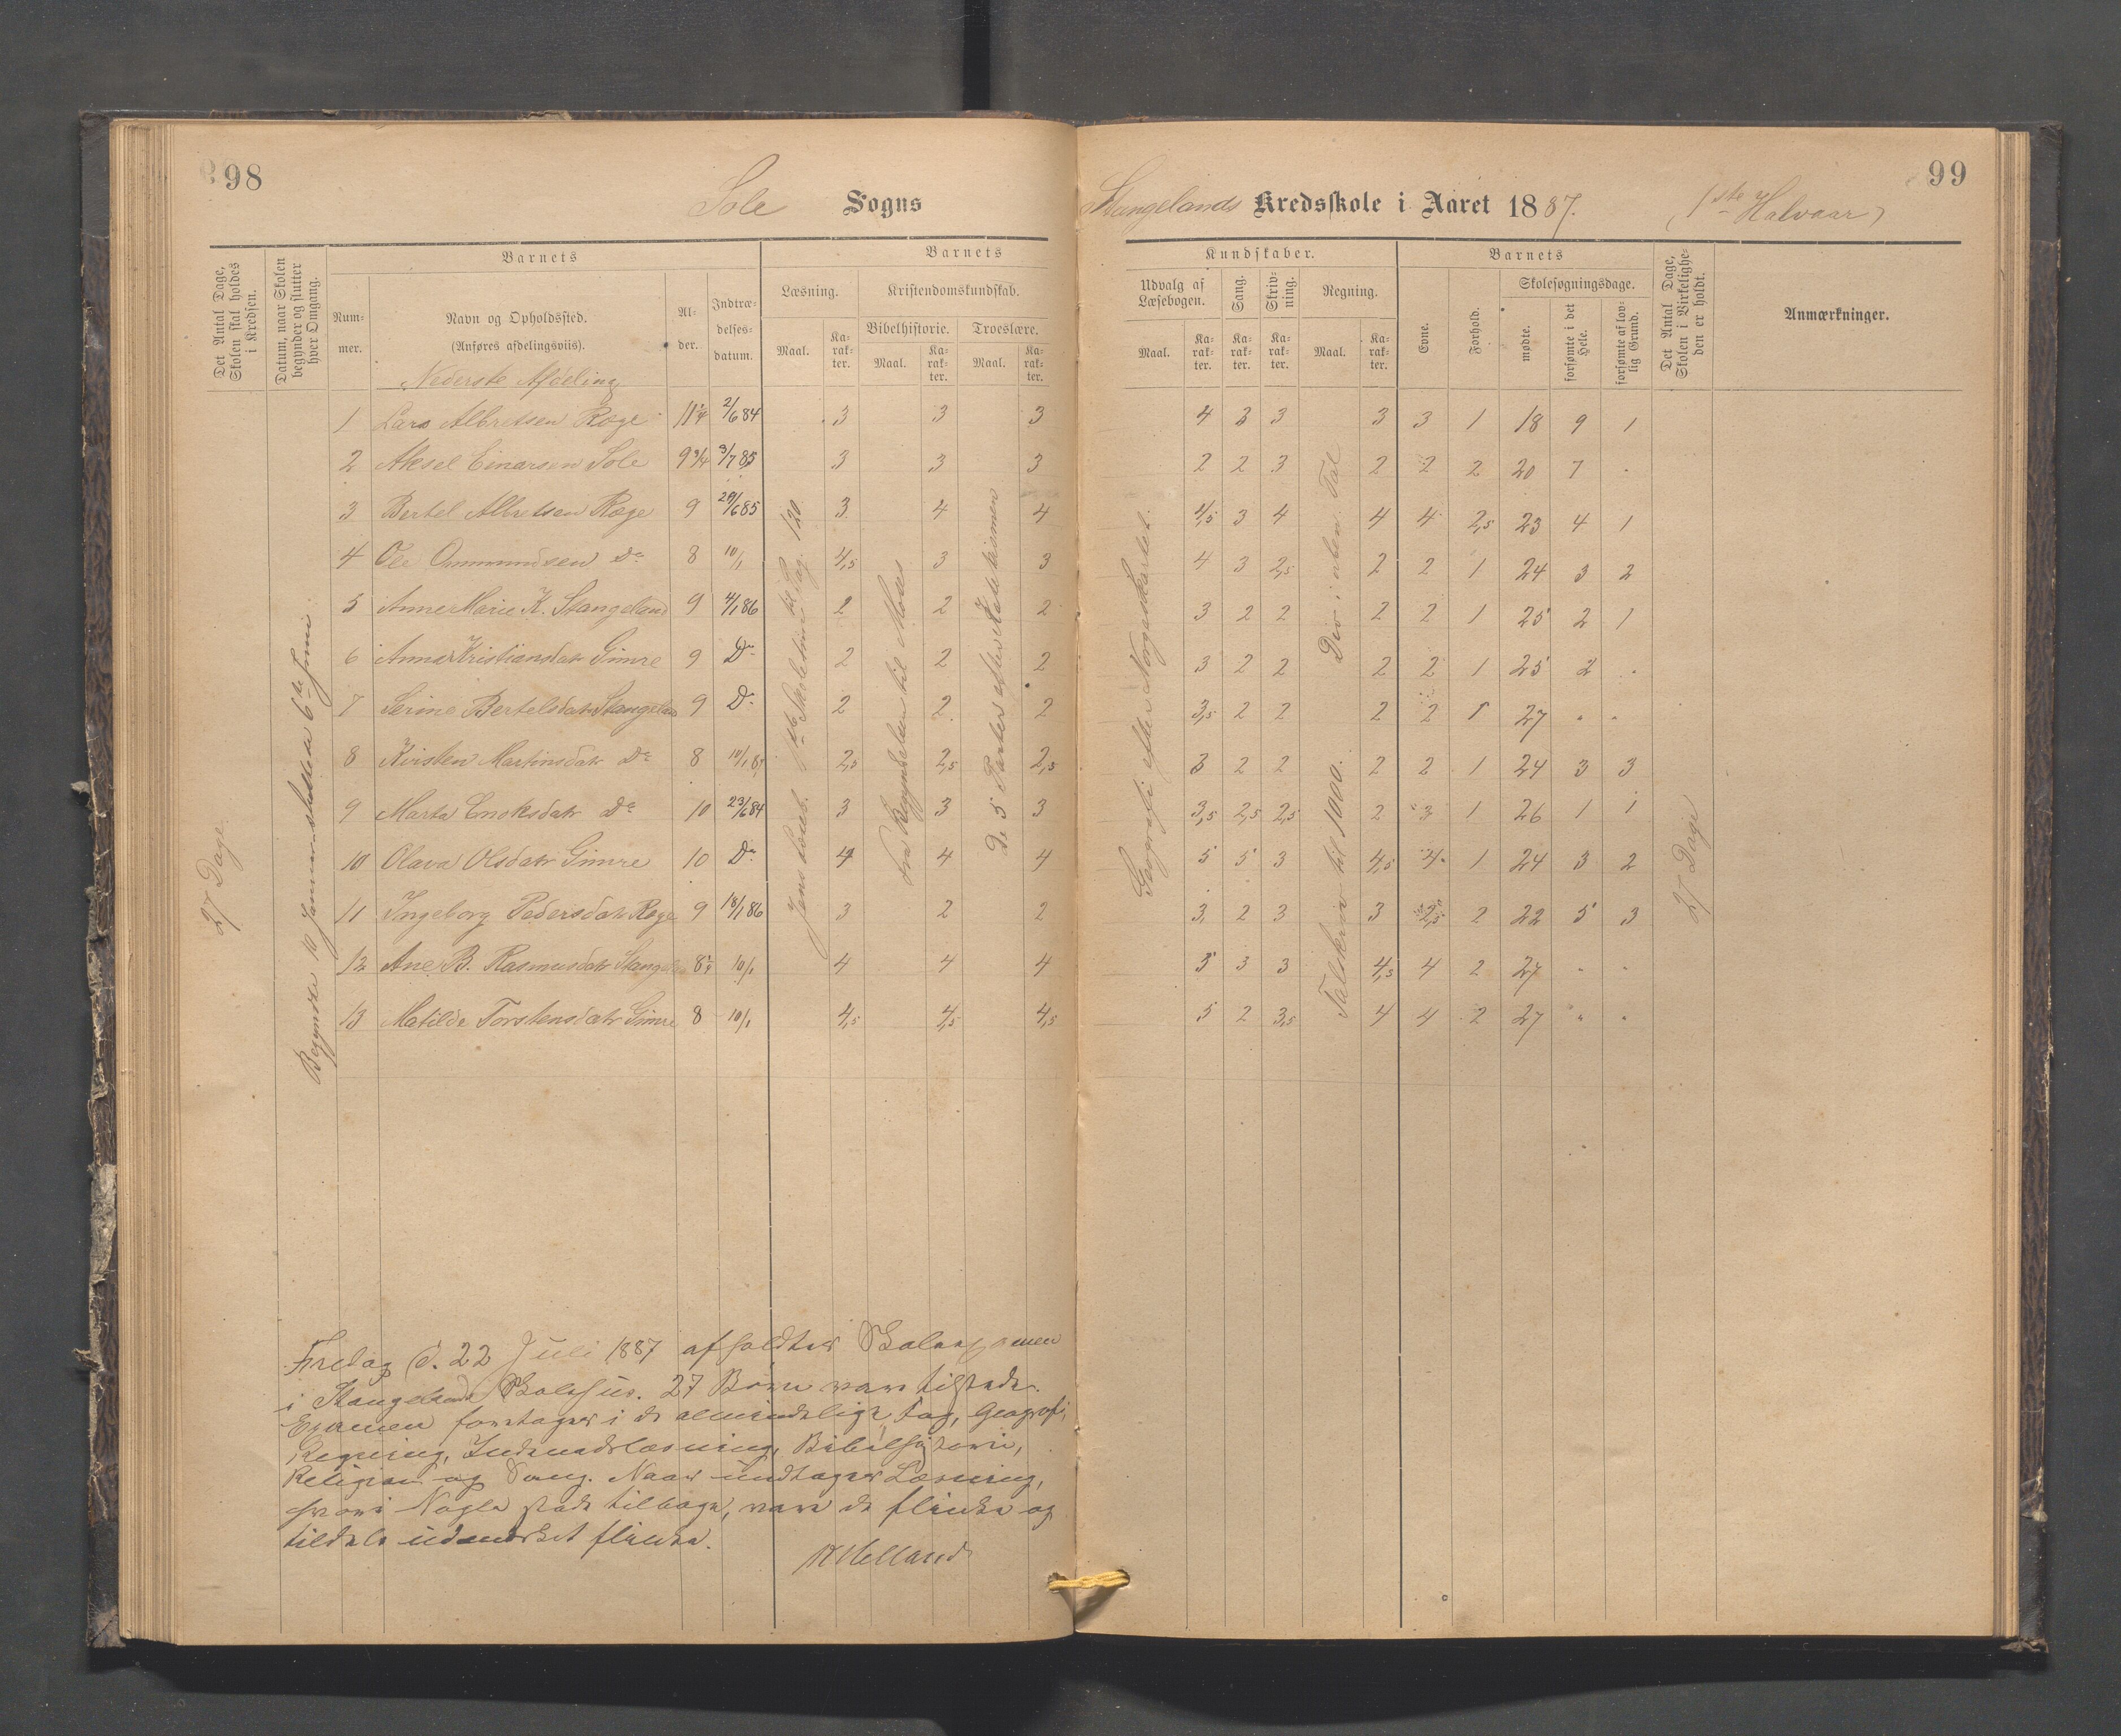 98
Sole Sogns
Det Antal Dage, Skolen skal holdes i Kredsen.
Datum, naar Skolen begynder og slutter hver Omgang.
Barnets
Nummer.
Navn og Opholdssted.
(Anføres afdelingsviis).
Alder.
Indtrædelsesdatum.
Barnets
Læsning.
Kristendomskundskab.
Bibelhistorie.
Troeslære.
Maal. Karakter. Maal. Karakter. Maal. Karakter.
Nederste Afdeling
1 Lars Albretsen Ræge 11¼ 2/6 84 3 3 3
2 Aksel Einarsen Sole 9¾ 3/7 85 3 3 3
3 Bertel Albretsen Ræge 9 29/6 85 3 4 4
4 Ole Ommundsen Do 8 10/1 4,5 3 3
5 Anne Marie K. Stangeland 9 4/1 86 2 2 2
6 Anna Kristiansdatr Gimre 9 Do 2 2 2
7 Serine Bertelsdatr Stangeland 9 Do 2 2 2
8 Kristen Martinsdatr Do 8 10/1 87 2,5 2,5 2,5
9 Marta Enoksdatr Do 10 23/6 84 3 3 3
10 Olava Olsdatr Gimre 10 Do 4 4 4
11 Ingeborg Pedersdatr Ræge 9 18/1 86 3 2 2
12 Ane B. Rasmusdatr Stangeland 8¼ 10/1 4 4 4
13 Matilde Torstensdatr Gimre 8 10/1 4,5 4,5 4,5
27 Dage
Begyndte 10 Januar sluttede 6te Juni
Jens Læseb. 1ste Skoletrin til Pag. 120
Fra Begyndelsen til Moses
De 5 Parter efter Katekismen
Fredag d. 22 Juli 1887 afholdtes Skoleexamen
i Stangelands Skolehus. 27 Børn vare tilstede.
Examen foretoges i de almindelige Fag, Geografi,
Regning, Indenadslæsning, Bibelhistorie,
Religion og Sang. Naar undtages Læsning,
hvori Nogle stode tilbage, vare de flinke og
tildels udmærket flinke.
Helland
99
Stangelands Kredsskole i Aaret 1887. (1ste Halvaar)
Kundskaber.
Udvalg af Læsebogen.
Sang.
Skrivning.
Regning.
Maal. Karakter. Karakter. Karakter. Maal. Karakter.
Barnets
Evne.
Forhold.
Skolesøgningsdage.
mødte.
forsømte i det Hele.
forsømte af lovlig Grund.
Det Antal Dage, Skolen i Virkeligheden er holdt.
Anmærkninger.
4 3 3 3 3 1 18 9 1
2 2 3 2 2 2 20 7 .
4,5 3 4 4 4 2,5 23 4 1
4 3 2,5 2 2 1 24 3 2
3 2 2 2 2 1 25 2 1
3 2 2 2 2 1 25 2 .
3,5 2 2 2 2 1 27 " "
3 2 2 2 2 1 24 3 3
3,5 2,5 2,5 2 3 1 26 1 1
5 5 3 4,5 4 1 24 3 2
3 2 3 3 2,5 2 22 5 3
5 3 3 4,5 4 2 27 " "
5 2 3,5 4 4 2 27 " "
Geografi efter Norgeskartet.
Talskriv. til 1000. Div. i uben. Tal
27 Dage